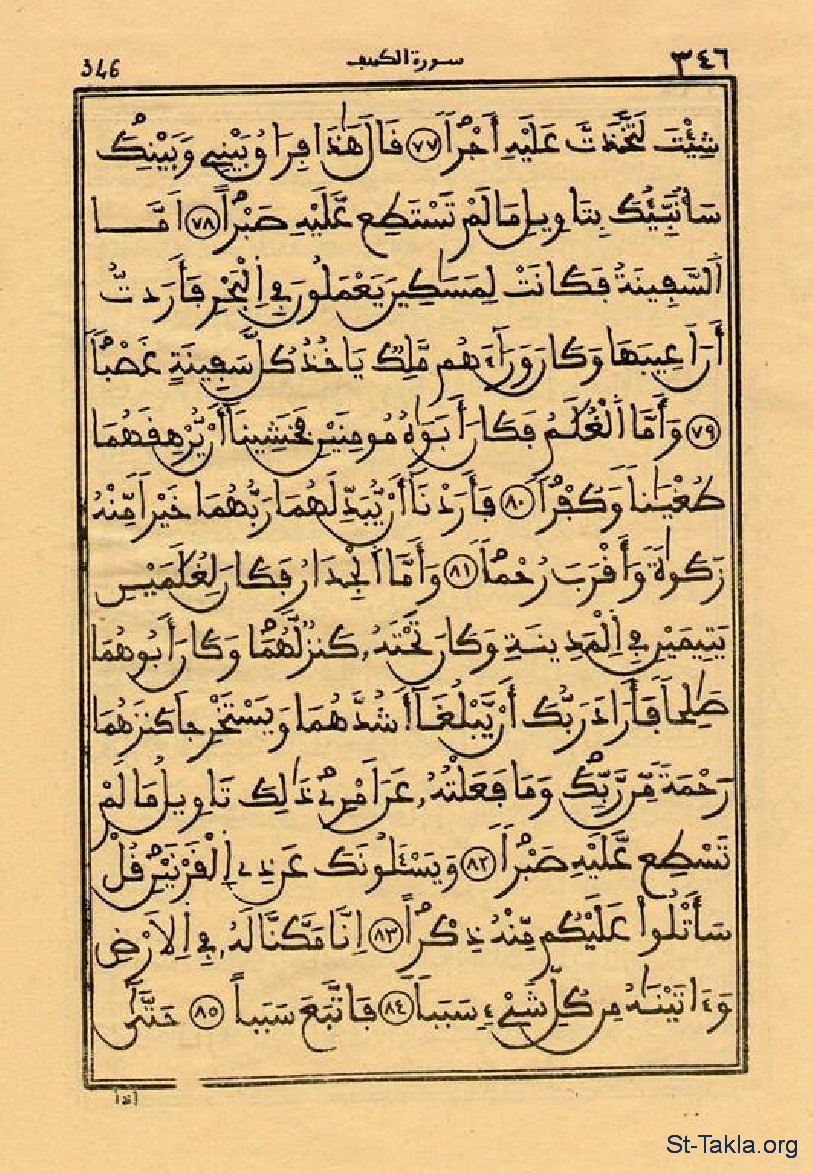 346 سورة الكهف ٣٤٦
شِئْتَ لَتَّخَذتَّ عَلَيْهِ أَجْراً ٧٧ قَالَ هَٰذَا فِرَاقُ بَيْنِے وَبَيْنِكَ
سَأُنَبِّئُكَ بِتَاوِيلِ مَا لَمْ تَسْتَطِع عَّلَيْهِ صَبْراً ٧٨ اَمَّا
اَلسَّفِينَةُ فَكَانَتْ لِمَسَٰكِينَ يَعْمَلُونَ فِے اِلْبَحْرِ فَأَرَدتُّ
أَنَ اَعِيبَهَا وَكَانَ وَرَآءَهُم مَّلِكٌ يَاخُذُ كُلَّ سَفِينَةٍ غَصْباً
٧٩ وَأَمَّا اَلْغُلَٰمُ فَكَانَ أَبَوَٰهُ مُومِنَيْنِ فَخَشِينَآ أَنْ يُّرْهِقَهُمَا
طُغْيَٰناً وَكُفْراً ٨٠ فَأَرَدْنَآ أَنْ يُّبَدِّلَهُمَا رَبُّهُمَا خَيْراً مِّنْهُ
زَكَوٰةً وَأَقْرَبَ رُحْماً ٨١ وَأَمَّا اَلْجِدَارُ فَكَانَ لِغُلَٰمَيْنِ
يَتِيمَيْنِ فِے اِلْمَدِينَةِ وَكَانَ تَحْتَهُۥ كَنزٌ لَّهُمَا وَكَانَ أَبُوهُمَا
صَٰلِحاً فَأَرَادَ رَبُّكَ أَنْ يَّبْلُغَآ أَشُدَّهُمَا وَيَسْتَخْرِجَا كَنزَهُمَا
رَحْمَةً مِّن رَّبِّكَ وَمَا فَعَلْتُهُۥ عَنَ اَمْرِے ذَٰلِكَ تَاوِيلُ مَا لَمْ
تَسْطِع عَّلَيْهِ صَبْراً ٨٢ وَيَسْـَٔلُونَكَ عَن ذِے اِلْقَرْنَيْنِ قُلْ
سَأَتْلُواْ عَلَيْكُم مِّنْهُ ذِكْراً ٨٣ اِنَّا مَكَّنَّا لَهُۥ فِے اِلَارْضِ
وَءَاتَيْنَٰهُ مِن كُلِّ شَےْءٍ سَبَباً ٨٤ فَاتَّبَعَ سَبَباً ٨٥ حَتَّىٰٓ
St-Takla.org